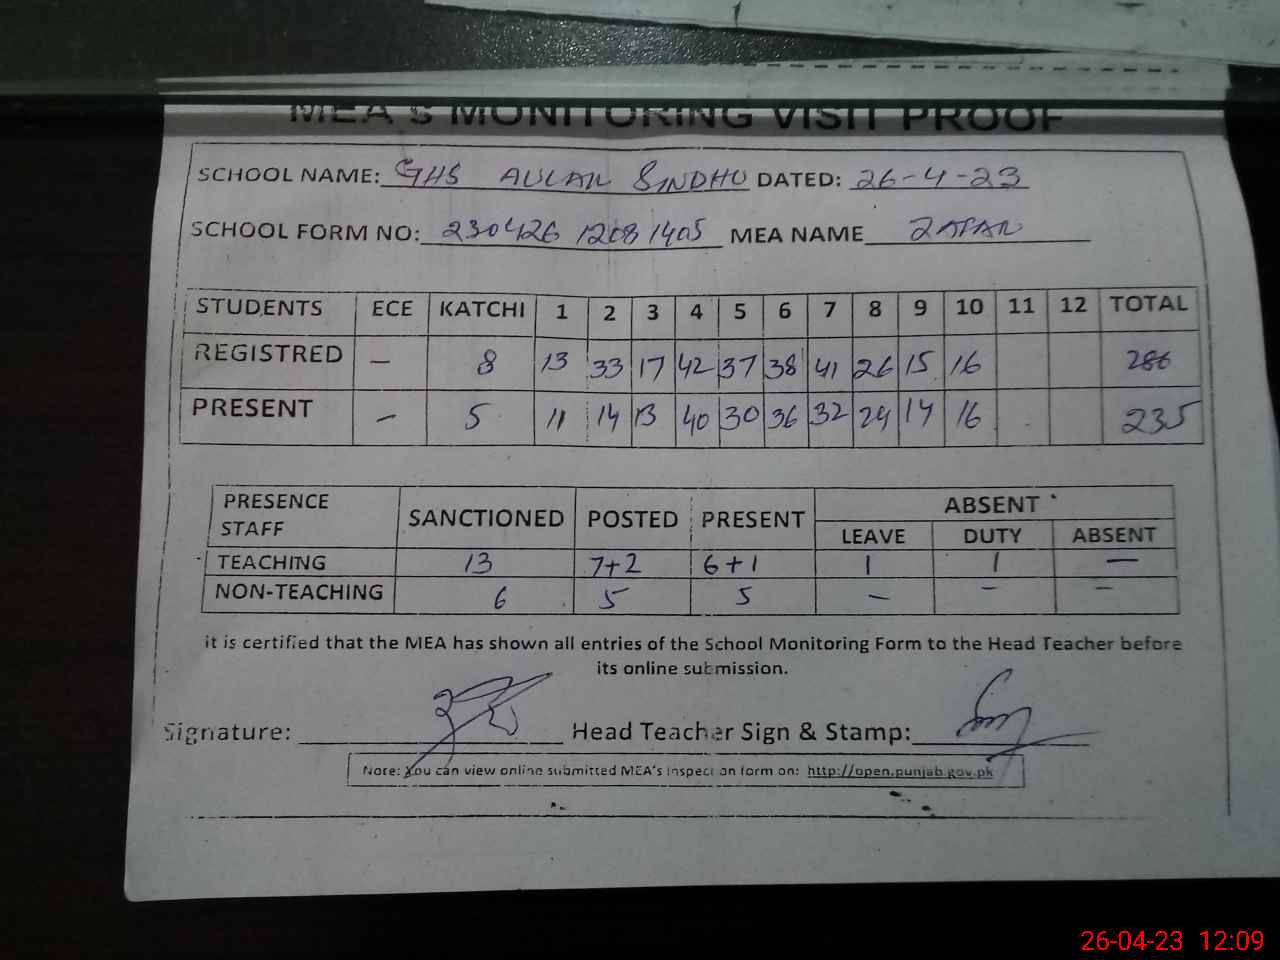 MEA'S MONITORING VISIT PROOF
SCHOOL NAME: GHS AULAK SINDHU DATED: 26-4-23
SCHOOL FORM NO: 230426 12081405 MEA NAME ZAFAR
STUDENTS ECE KATCHI 1 2 3 4 5 6 7 8 9 10 11 12 TOTAL
REGISTRED – 8 13 33 17 42 37 38 41 26 15 16 286
PRESENT – 5 11 14 13 40 30 36 32 24 14 16 235
PRESENCE STAFF SANCTIONED POSTED PRESENT ABSENT
LEAVE DUTY ABSENT
TEACHING 13 7+2 6+1 1 1 –
NON-TEACHING 6 5 5 – – –
it is certified that the MEA has shown all entries of the School Monitoring Form to the Head Teacher before
its online submission.
Signature: Head Teacher Sign & Stamp:
Note: You can view online submitted MEA's inspection form on: http://open.punjab.gov.pk
26-04-23 12:09